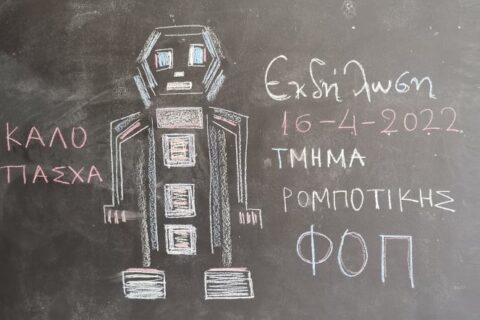 ΚΑΛΟ
ΠΑΣΧΑ
Εκδήλωση
16-4-2022
ΤΜΗΜΑ
ΡΟΜΠΟΤΙΚΗΣ
ΦΟΠ